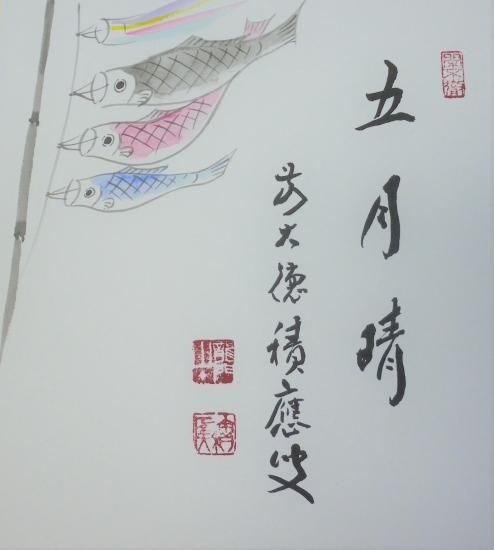 五月晴
前大徳積應叟